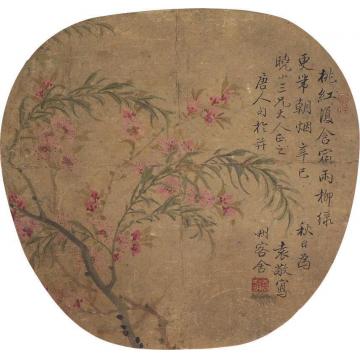 桃紅復含宿雨柳綠
更帶朝烟辛巳秋日為
曉山三兄大人正之袁敬寫
唐人句於并州客舍